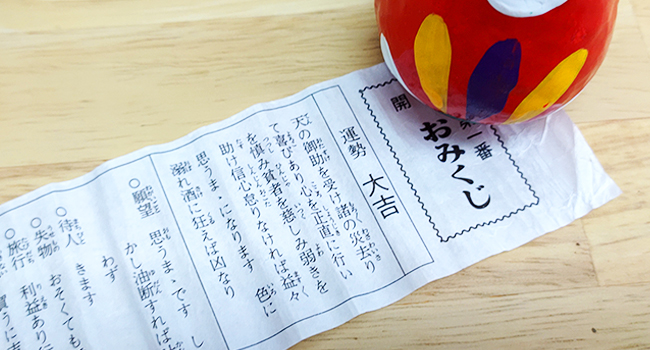 第一番
おみくじ
開
運勢 大吉
天の御助を受け諸の災去り
て喜びあり心を正直に行い
を慎み貧者を慈しみ弱きを
助け信心怠りなければ益々
思うまゝになります 色に
溺れ酒に狂えば凶なり
○願望 思うまゝです し
かし油断すれば
わず
○待人 きます
おそくても
○失物
利益あり
○旅行
買うに